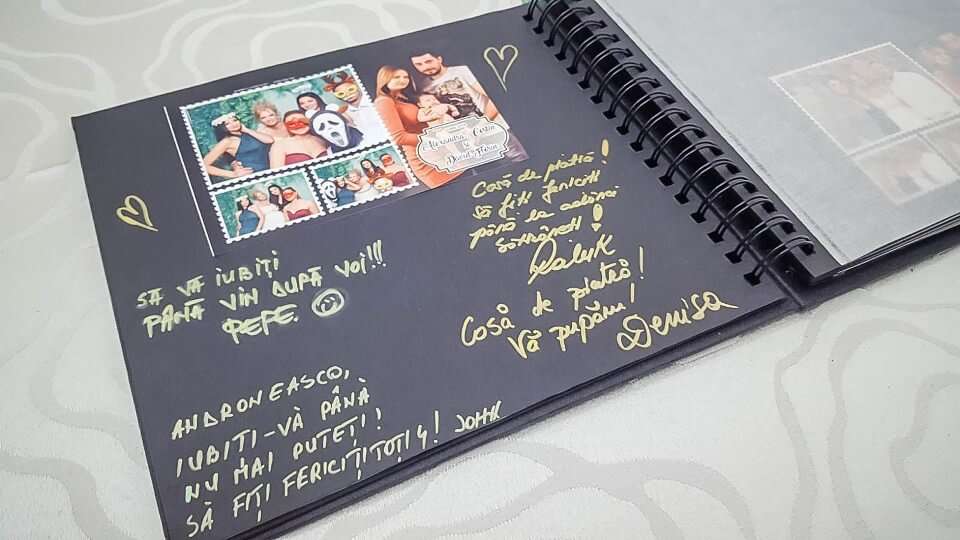 Alexandra Costin
si
David Florin
SĂ VĂ IUBIȚI
PÂNĂ VIN DUPĂ VOI!!!
PEPE
Casă de piatră!
Să fiți fericiți
până la adânci
bătrâneți!
Casă de piatră!
Vă pupăm!
Denisa
ANDRONEASCO,
IUBIȚI-VĂ PÂNĂ
NU MAI PUTEȚI!
SĂ FIȚI FERICIȚI TOȚI 4!